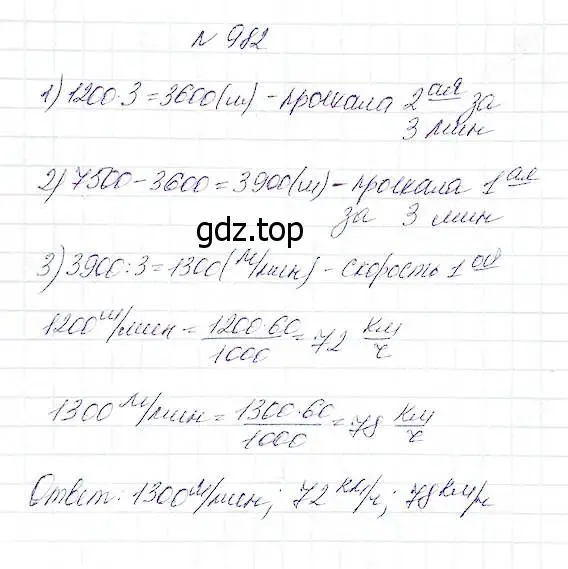 № 982
1) 1200·3=3600(м) - проехала 2ая за
3 мин
2) 7500-3600=3900(м) - проехала 1ая
за 3 мин
gdz.top
3) 3900:3=1300(м/мин) - скорость 1ой
1200 м/мин = 1200·60/1000 = 72 км/ч
1300 м/мин = 1300·60/1000 = 78 км/ч
Ответ: 1300 м/мин; 72 км/ч; 78 км/ч